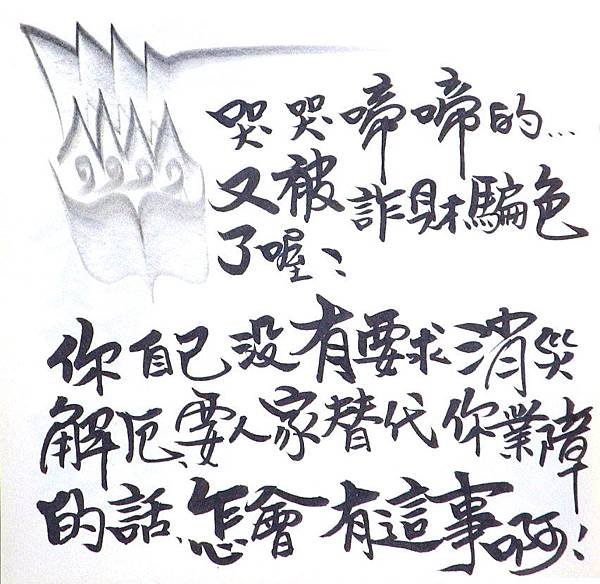 哭哭啼啼的…
又被詐財騙色
了喔：
你自己沒有要求消災
解厄、要人家替代你業障
的話、怎會有這事啊：